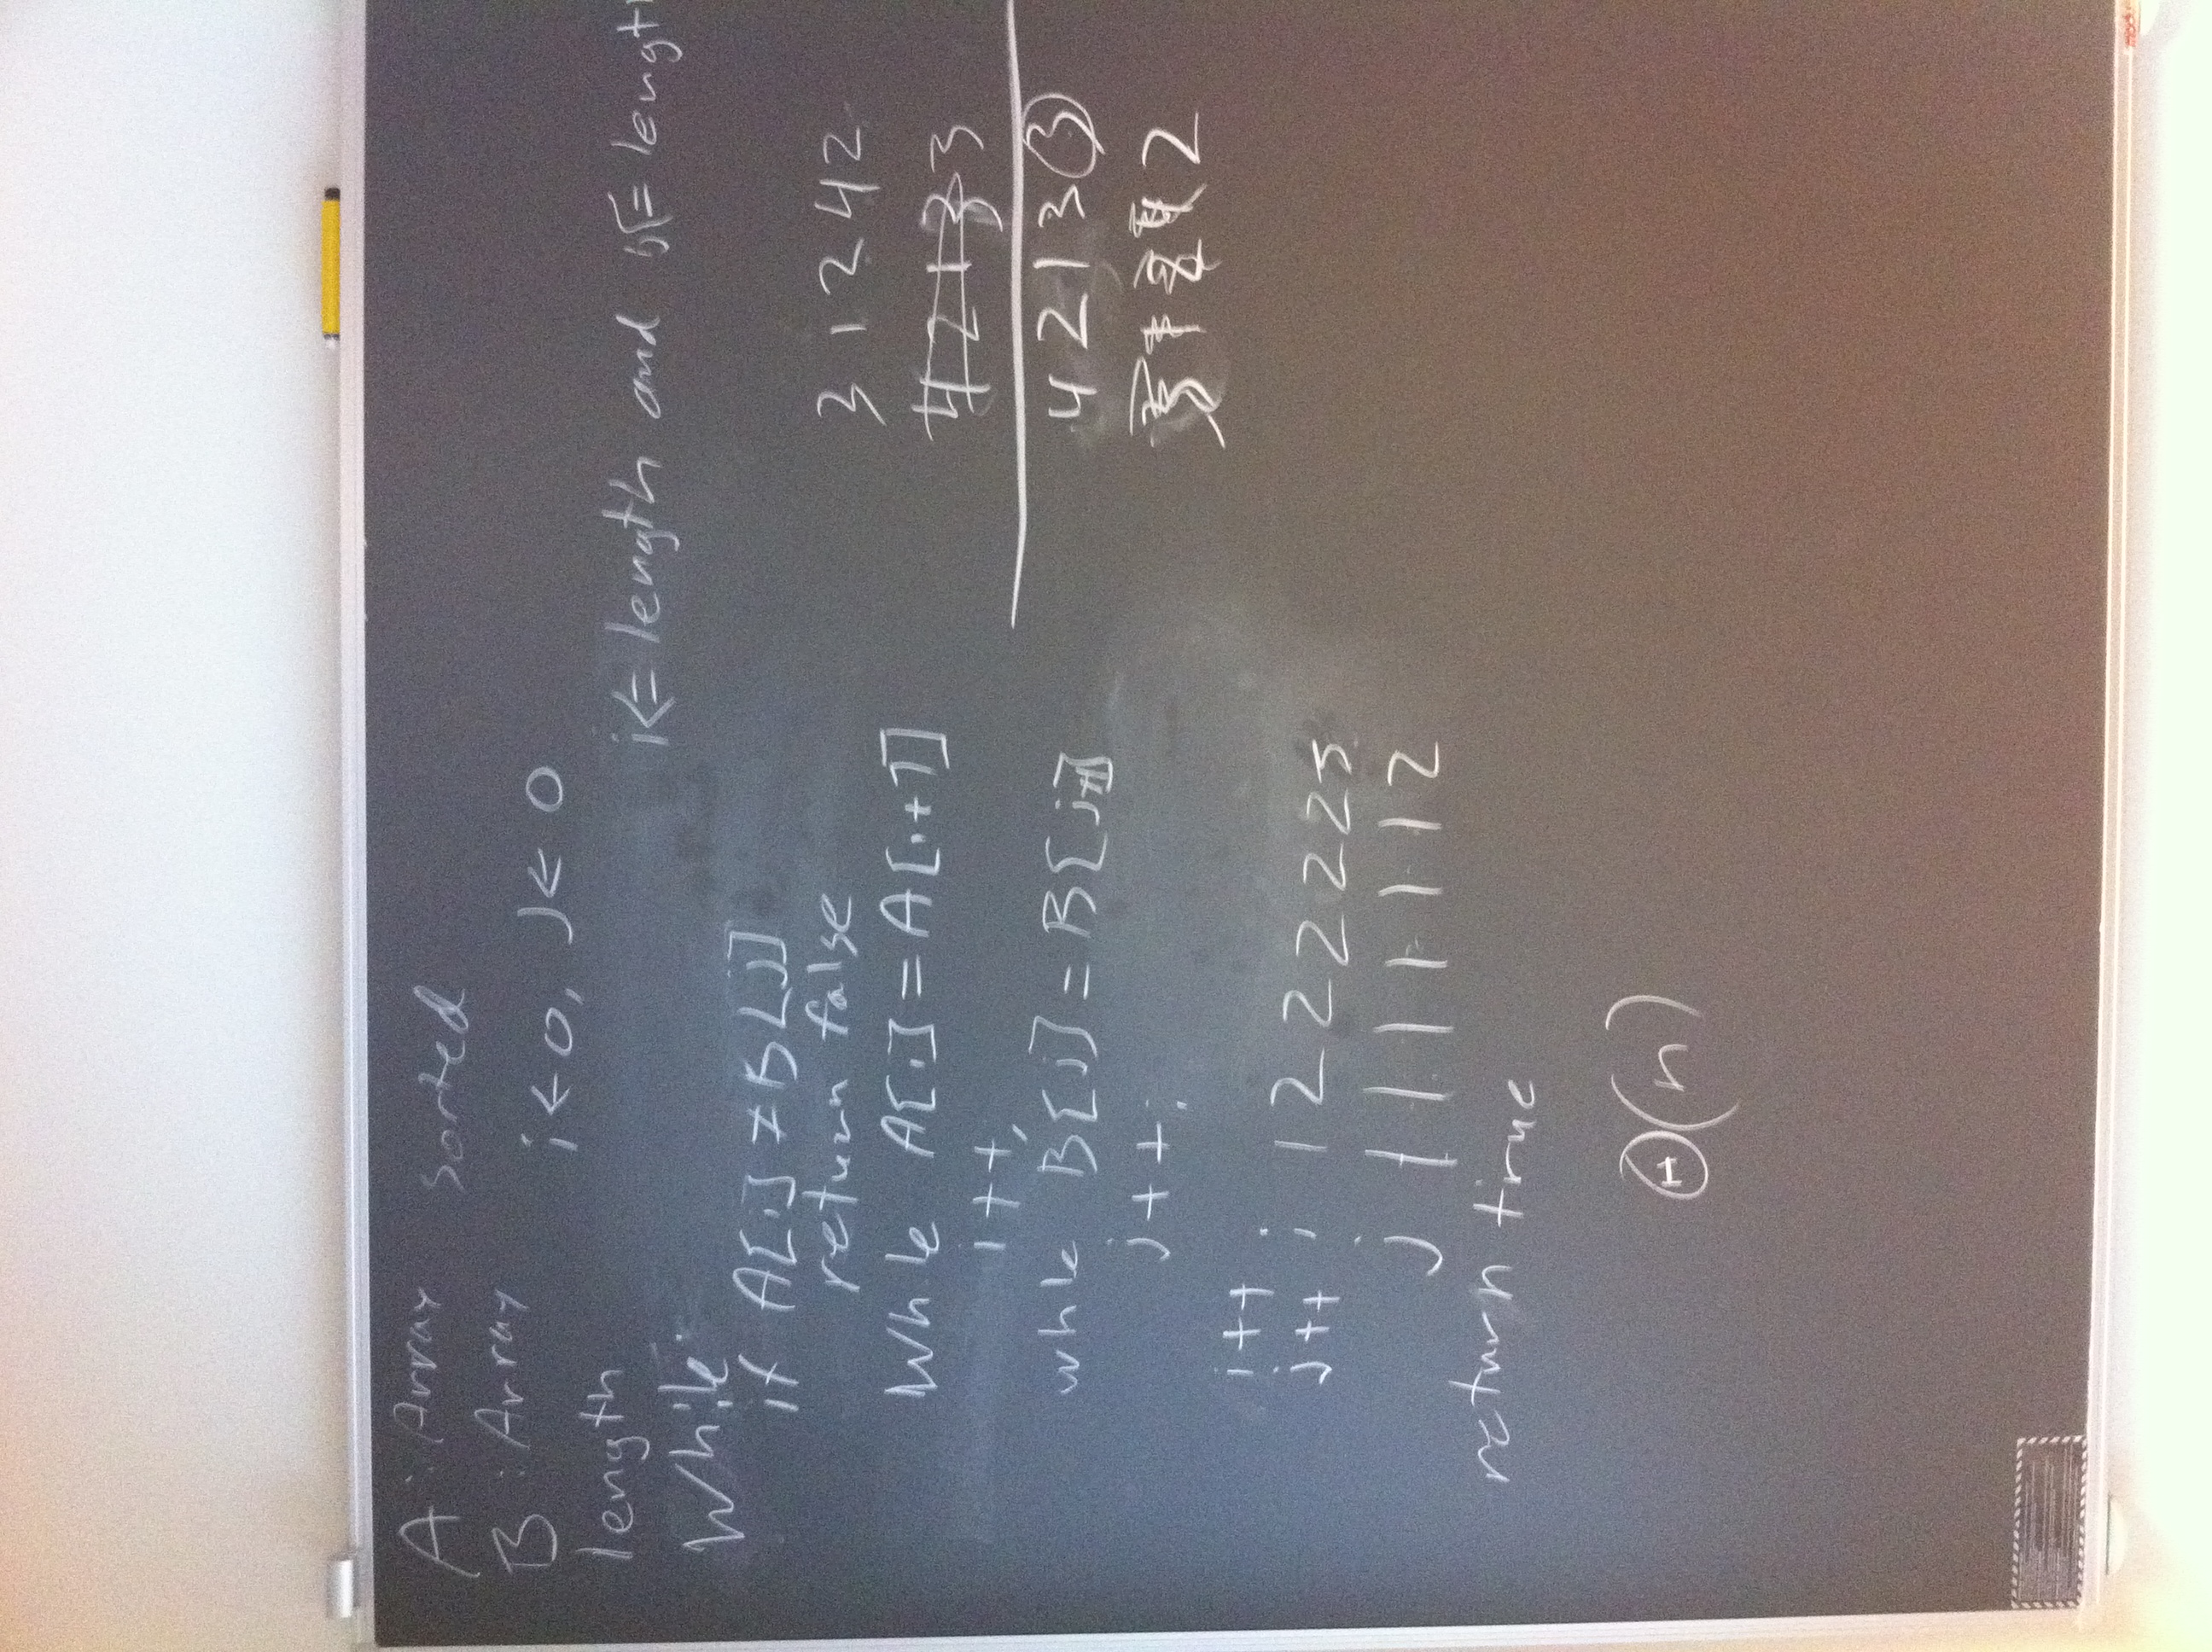 A : Array sorted
B : Array
i ← 0, j ← 0
length
i <= length and j <= length
While
if A[i] ≠ B[j]
return false
While A[i] = A[i+1]
i++;
while B[j] = B[j+1]
j++;
i++
j++
i 1 2 2 2 2 2 5
j 1 1 1 1 1 1 2
return true
Θ(n)
3 1 2 4 2
4 2 1 3 3
4 2 1 3 3
3 1 2 4 2